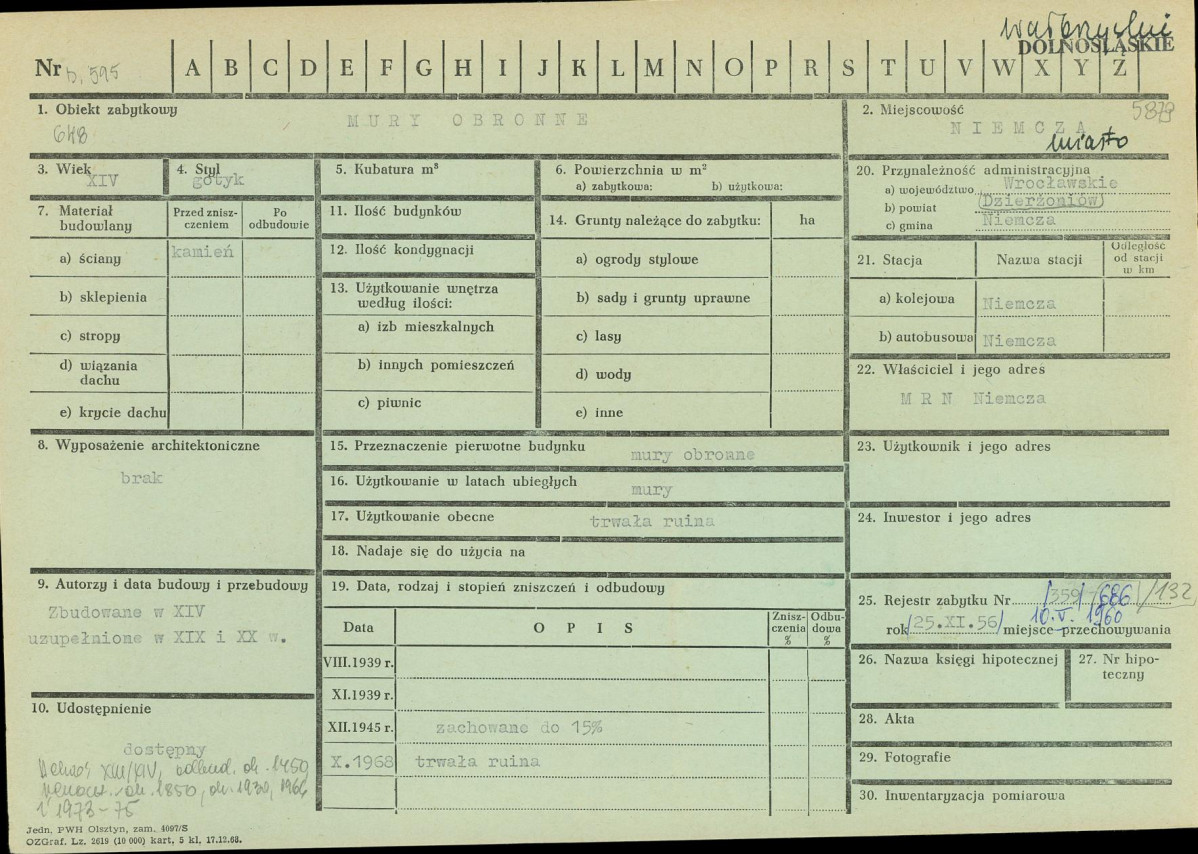 wałbrzyskie
DOLNOŚLĄSKIE
Nr b. 595 A B C D E F G H I J K L M N O P R S T U V W X Y Z
1. Obiekt zabytkowy
MURY OBRONNE
2. Miejscowość
NIEMCZA
miasto
3. Wiek
XIV
4. Styl
gotyk
5. Kubatura m³
6. Powierzchnia w m²
a) zabytkowa: b) użytkowa:
20. Przynależność administracyjna
a) województwo Wrocławskie
b) powiat (Dzierżoniów)
c) gmina Niemcza
7. Materiał budowlany
Przed zniszczeniem
Po odbudowie
a) ściany kamień
b) sklepienia
c) stropy
d) wiązania dachu
e) krycie dachu
11. Ilość budynków
12. Ilość kondygnacji
13. Użytkowanie wnętrza według ilości:
a) izb mieszkalnych
b) innych pomieszczeń
c) piwnic
14. Grunty należące do zabytku: ha
a) ogrody stylowe
b) sady i grunty uprawne
c) lasy
d) wody
e) inne
21. Stacja Nazwa stacji Odległość od stacji w km
a) kolejowa Niemcza
b) autobusowa Niemcza
22. Właściciel i jego adres
M R N Niemcza
8. Wyposażenie architektoniczne
brak
15. Przeznaczenie pierwotne budynku mury obronne
16. Użytkowanie w latach ubiegłych mury
17. Użytkowanie obecne trwała ruina
18. Nadaje się do użycia na
23. Użytkownik i jego adres
24. Inwestor i jego adres
9. Autorzy i data budowy i przebudowy
Zbudowane w XIV
uzupełnione w XIX i XX w.
19. Data, rodzaj i stopień zniszczeń i odbudowy
Data O P I S Zniszczenia % Odbudowa %
VIII.1939 r.
XI.1939 r.
XII.1945 r. zachowane do 15%
X.1968 trwała ruina
25. Rejestr zabytku Nr /359/ 686 /132
rok /25.XI.56/ 10.V.1960 miejsce przechowywania
26. Nazwa księgi hipotecznej
27. Nr hipoteczny
28. Akta
29. Fotografie
30. Inwentaryzacja pomiarowa
10. Udostępnienie
dostępny
XIII/XIV, odbud. ok. 1450
ok. 1850, ok. 1930, 1966
i 1973-75
Jedn. PWH Olsztyn, zam. 4097/S
OZGraf. Lz. 2619 (10 000) kart, 5 kl, 17.12.68.